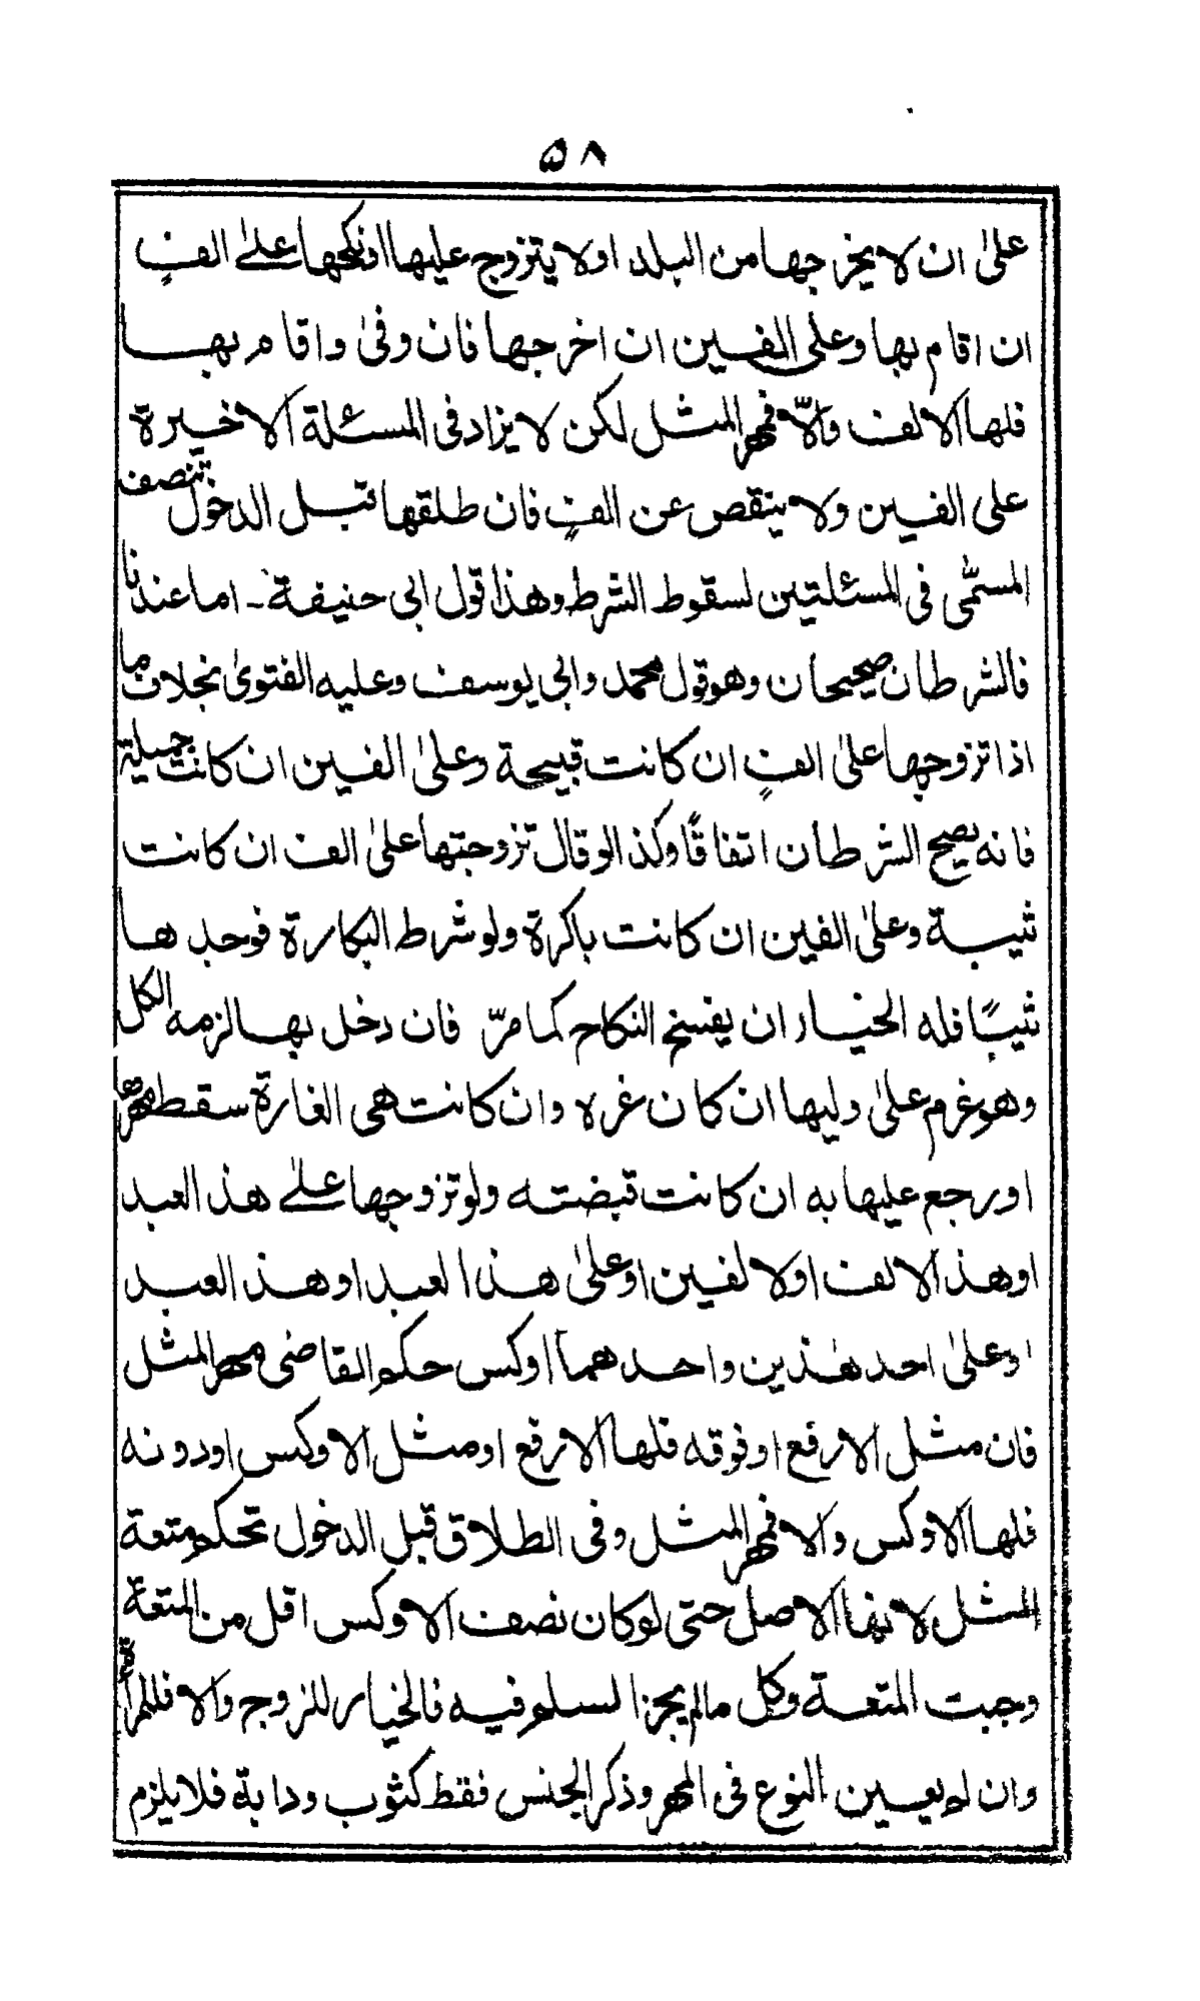 ٥٨
علىٰ ان لا يخرجها من البلد او لا يتزوج عليها او نكحها علىٰ الفٍ
ان اقام بها وعلى الفين ان اخرجها فان وفىٰ واقام بها
فلها الالف والّا فمهر المثل لكن لا يزاد فى المسئلة الاخيرة
على الفين ولا ينقص عن الفٍ فان طلقها قبل الدخول تنصف
المسمّى فى المسئلتين لسقوط الشرط وهذا قول ابى حنيفة۔ اما عندنا
فالشرطان صحيحان وهو قول محمد وابى يوسف وعليه الفتوىٰ بخلاف ما
اذا تزوجها علىٰ الفٍ ان كانت قبيحة وعلىٰ الفين ان كانت جميلة
فانه يصح الشرطان اتفاقًا وكذا لو قال تزوجتها علىٰ الف ان كانت
ثيبة وعلىٰ الفين ان كانت باكرة ولو شرط البكارة فوجدها
ثيبًا فله الخيار ان يفسخ النكاح كما مرّ فان دخل بها لزمه الكل
وهو غرم علىٰ وليها ان كان غره وان كانت هى الغارة سقط مهرها
او رجع عليها به ان كانت قبضته ولو تزوجها علىٰ هذ العبد
او هذ الالف او الالفين او علىٰ هذا العبد او هذ العبد
او علىٰ احد هٰذين واحدهما اوكس حكم القاضى مهر المثل
فان مثل الارفع او فوقه فلها الارفع او مثل الاوكس او دونه
فلها الاوكس والا فمهر المثل وفى الطلاق قبل الدخول تحكم متعة
المثل لانها الاصل حتى لو كان نصف الاوكس اقل من المتعة
وجبت المتعة وكل مالم يجز السلم فيه فالخيار للزوج والا فللمرأة
وان لم يعين النوع فى المهر وذكر الجنس فقط كثوب ودابة فلا يلزم